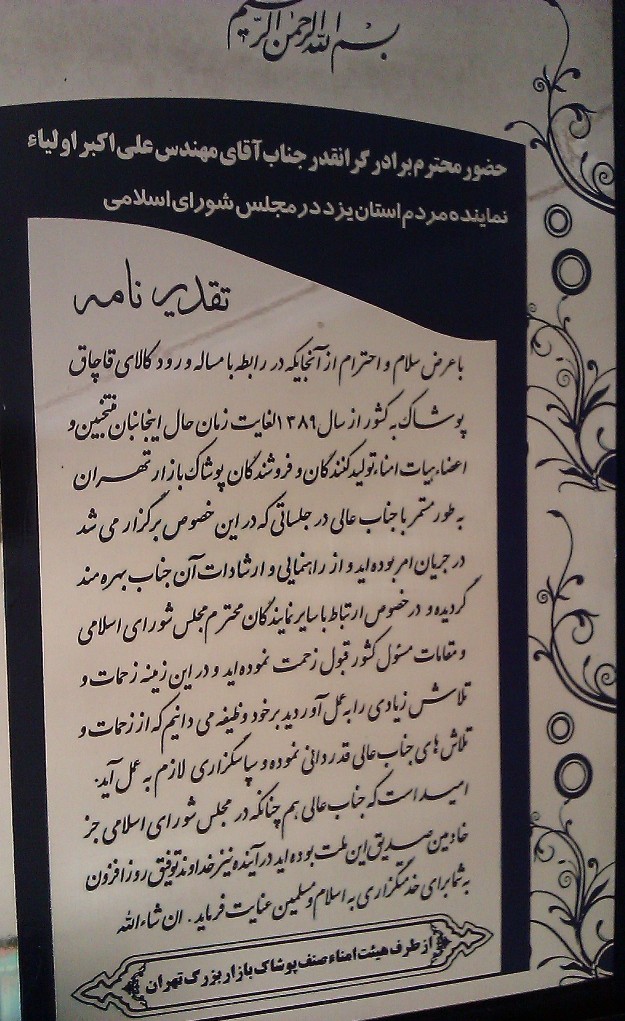 بسم الله الرحمن الرحیم
حضور محترم برادر گرانقدر جناب آقای مهندس علی اکبر اولیاء
نماینده مردم استان یزد در مجلس شورای اسلامی
تقدیر نامه
با عرض سلام و احترام از آنجایکه در رابطه با مساله ورود کالای قاچاق
پوشاک به کشور از سال ۱۳۸۹ لغایت زمان حال اینجانبان منتخبین و
اعضاء هیات امناء تولید کنندگان و فروشندگان پوشاک بازار تهران
به طور مستمر با جناب عالی در جلساتی که در این خصوص برگزار می شد
در جریان امر بوده اید و از راهنمایی و ارشادات آن جناب بهره مند
گردیده و در خصوص ارتباط با سایر نمایندگان محترم مجلس شورای اسلامی
و مقامات مسئول کشور قبول زحمت نموده اید و در این زمینه زحمات و
تلاش زیادی را به عمل آوردید بر خود وظیفه می دانیم که از زحمات و
تلاش های جناب عالی قدردانی نموده و سپاسگزاری لازم به عمل آید.
امید است که جناب عالی هم چنانکه در مجلس شورای اسلامی جز
خادمین صدیق این ملت بوده اید در آینده نیز خداوند توفیق روز افزون
به شما برای خدمتگزاری به اسلام و مسلمین عنایت فرماید. ان شاءالله
از طرف هیئت امناء صنف پوشاک بازار بزرگ تهران